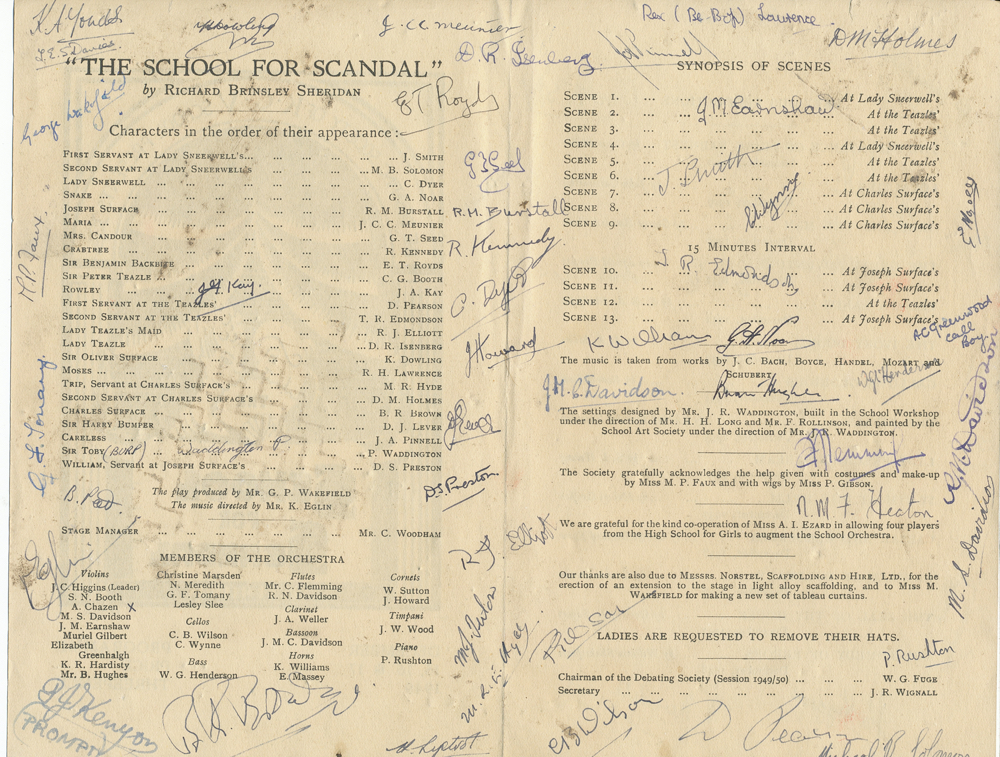 K A Youdds
J. C. C. Meunier
Rex (Be-Bop) Lawrence
D M Holmes
D. R. Isenberg
J A Pinnell
"THE SCHOOL FOR SCANDAL"
by RICHARD BRINSLEY SHERIDAN
George Wakefield
E T Royds
Characters in the order of their appearance :—
FIRST SERVANT AT LADY SNEERWELL'S... ... ... ... ... J. SMITH
SECOND SERVANT AT LADY SNEERWELL'S ... ... ... M. B. SOLOMON
LADY SNEERWELL ... ... ... ... ... ... C. DYER
SNAKE ... ... ... ... ... ... ... G. A. NOAR
JOSEPH SURFACE ... ... ... ... ... R. M. BURSTALL
MARIA ... ... ... ... ... ... J. C. C. MEUNIER
MRS. CANDOUR ... ... ... ... ... ... G. T. SEED
CRABTREE ... ... ... ... ... ... R. KENNEDY
SIR BENJAMIN BACKBITE ... ... ... ... ... E. T. ROYDS
SIR PETER TEAZLE ... ... ... ... ... ... C. G. BOOTH
ROWLEY ... ... ... ... ... J. A. KAY
J A Kay
FIRST SERVANT AT THE TEAZLES' ... ... ... ... D. PEARSON
SECOND SERVANT AT THE TEAZLES' ... ... ... T. R. EDMONDSON
LADY TEAZLE'S MAID ... ... ... ... ... R. J. ELLIOTT
LADY TEAZLE ... ... ... ... ... ... D. R. ISENBERG
SIR OLIVER SURFACE ... ... ... ... ... K. DOWLING
MOSES ... ... ... ... ... ... R. H. LAWRENCE
TRIP, SERVANT AT CHARLES SURFACE'S ... ... ... M. R. HYDE
SECOND SERVANT AT CHARLES SURFACE'S ... ... ... D. M. HOLMES
CHARLES SURFACE ... ... ... ... ... B. R BROWN
SIR HARRY BUMPER ... ... ... ... ... D. J. LEVER
CARELESS ... ... ... ... ... ... J. A. PINNELL
SIR TOBY (BURP) Waddington P. ... P. WADDINGTON
WILLIAM, SERVANT AT JOSEPH SURFACE'S ... ... ... D. S. PRESTON
The play produced by MR. G. P. WAKEFIELD
The music directed by MR. K. EGLIN
STAGE MANAGER ... ... ... ... ... MR. C. WOODHAM
MEMBERS OF THE ORCHESTRA
Violins
J. C. Higgins (Leader)
S. N. Booth
A. Chazen x
M. S. Davidson
J. M. Earnshaw
Muriel Gilbert
Elizabeth
Greenhalgh
K. R. Hardisty
Mr. B. Hughes
Christine Marsden
N. Meredith
G. F. Tomany
Lesley Slee
Cellos
C. B. Wilson
C. Wynne
Bass
W. G. Henderson
Flutes
Mr. C. Flemming
R. N. Davidson
Clarinet
J. A. Weller
Bassoon
J. M. C. Davidson
Horns
K. Williams
E. Massey
Cornets
W. Sutton
J. Howard
Timpani
J. W. Wood
Piano
P. Rushton
M.P. Faux.
R. M. Burstall
R. Kennedy
C. Dyer
J Howard
D S Preston
R J. Elliott
PROMPT
SYNOPSIS OF SCENES
SCENE 1. ... ... ... ... ... ... At Lady Sneerwell's
SCENE 2. ... ... ... ... ... ... At the Teazles'
J.M Earnshaw
SCENE 3. ... ... ... ... ... ... At the Teazles'
SCENE 4. ... ... ... ... ... ... At Lady Sneerwell's
SCENE 5. ... ... ... ... ... ... At the Teazles'
SCENE 6. ... ... ... ... ... ... At the Teazles'
SCENE 7. ... ... ... ... ... ... At Charles Surface's
SCENE 8. ... ... ... ... ... ... At Charles Surface's
SCENE 9. ... ... ... ... ... ... At Charles Surface's
15 MINUTES INTERVAL
SCENE 10. ... ... ... ... ... ... At Joseph Surface's
SCENE 11. ... ... ... ... ... ... At Joseph Surface's
SCENE 12. ... ... ... ... ... ... At the Teazles'
SCENE 13. ... ... ... ... ... ... At Joseph Surface's
A C Greenwood
call
Boy
K William
G. A. Noar
The music is taken from works by J. C. BACH, BOYCE, HANDEL, MOZART and
SCHUBERT.
J.M.C. Davidson.
Brian Hughes
W G Henderson
The settings designed by MR. J. R. WADDINGTON, built in the School Workshop
under the direction of MR. H. H. LONG and MR. F. ROLLINSON, and painted by the
School Art Society under the direction of MR. J. R. WADDINGTON.
R. N. Davidson
The Society gratefully acknowledges the help given with costumes and make-up
by MISS M. P. FAUX and with wigs by MISS P. GIBSON.
R. M. F. Heaton
We are grateful for the kind co-operation of MISS A. I. EZARD in allowing four players
from the High School for Girls to augment the School Orchestra.
M. S. Davidson
Our thanks are also due to MESSRS. NORSTEL, SCAFFOLDING AND HIRE, LTD., for the
erection of an extension to the stage in light alloy scaffolding, and to MISS M.
WAKEFIELD for making a new set of tableau curtains.
LADIES ARE REQUESTED TO REMOVE THEIR HATS.
P. Rushton
Chairman of the Debating Society (Session 1949/50) ... ... ... W. G. FUGE
Secretary ... ... ... ... ... ... ... J. R. WIGNALL
C B Wilson
D Pearson